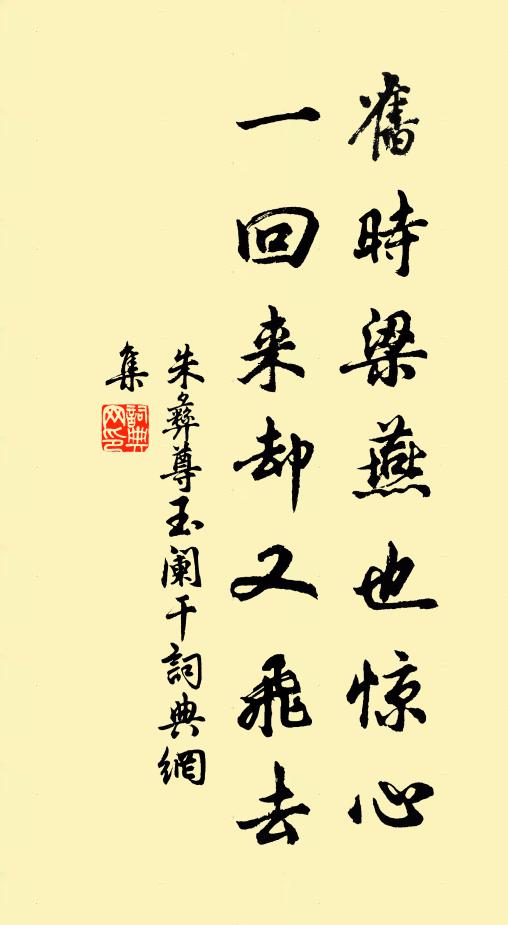 舊時梁燕也惊心
一回来却又飛去
朱彝尊玉阑干詞典網
集
詞典网印